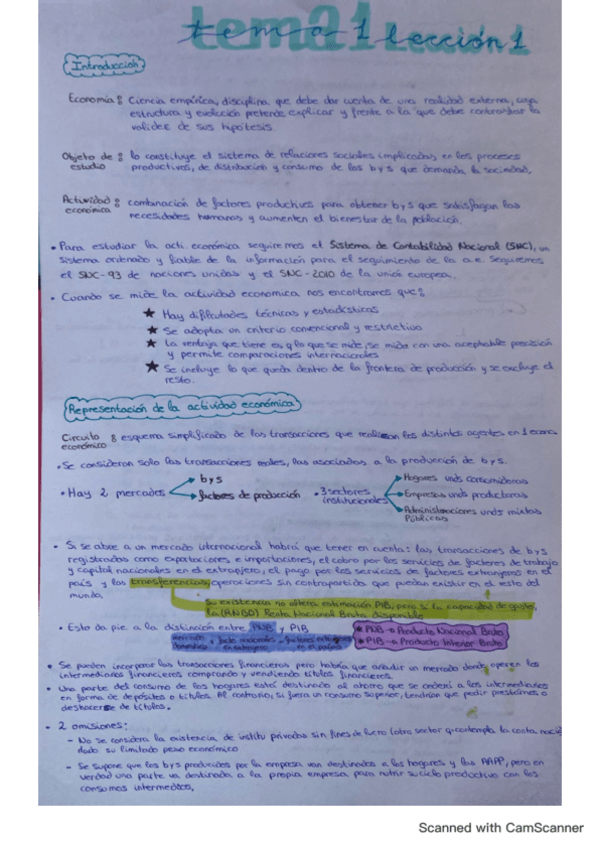 tema 1 Lección 1
Introducción
Economía: Ciencia empírica, disciplina que debe dar cuenta de una realidad externa, cuya
estructura y evolución pretende explicar y frente a la que debe contrastar la
validez de sus hipótesis.
Objeto de estudio: lo constituye el sistema de relaciones sociales implicadas, en los procesos
productivos, de distribución y consumo de los b y s que demanda la sociedad.
Actividad económica: combinación de factores productivos para obtener b y s que satisfagan las
necesidades humanas y aumenten el bienestar de la población.
• Para estudiar la acti. económica seguiremos el Sistema de Contabilidad Nacional (SNC), un
sistema ordenado y fiable de la información para el seguimiento de la a.e. Seguiremos
el SNC-93 de naciones unidas y el SNC-2010 de la unión europea.
• Cuando se mide la actividad economica nos encontramos que:
★ Hay dificultades técnicas y estadísticas
★ Se adopta un criterio convencional y restrictivo
★ La ventaja que tiene es, q lo que se mide, se mide con una aceptable precisión
y permite comparaciones internacionales
★ Se incluye lo que queda dentro de la frontera de producción y se excluye el
resto.
Representación de la actividad económica
Circuito económico: esquema simplificado de las transacciones que realizan los distintos agentes en 1 econo
• Se consideran solo las transacciones reales, las asociadas a la producción de b y s.
• Hay 2 mercados b y s
factores de producción
• 3 sectores institucionales
Hogares unds consumidoras
Empresas unds productoras
Administraciones Públicas unds mixtas
• Si se abre a un mercado internacional habrá que tener en cuenta: las transacciones de b y s
registradas como exportaciones e importaciones, el cobro por los servicios de factores de trabajo
y capital nacionales en el extranjero, el pago por los servicios de factores extranjeros en el
país y las transferencias, operaciones sin contrapartida que puedan existir en el resto del
mundo.
Su existencia no altera estimación PIB, pero sí la capacidad de gasto,
la (RNBD) Renta Nacional Bruta disponible
• Esto da pie a la distinción entre PNB y PIB
factores extranjeros en el país
★ PNB → Producto Nacional Bruto
★ PIB → Producto Interior Bruto
• Se pueden incorporar las transacciones financieras pero habría que añadir un mercado donde operen los
intermediarios financieros comprando y vendiendo títulos financieros.
• Una parte del consumo de los hogares está destinado al ahorro que se cederá a los intermediarios
en forma de depósitos o títulos. Al contrario, si fuera un consumo superior, tendrían que pedir prestamos o
deshacerse de títulos.
• 2 omisiones:
- No se considera la existencia de institu privadas sin fines de lucro (otro sector q contempla la conta nacio
dado su limitado peso económico
- Se supone que los b y s producidos por la empresa van destinados a los hogares y las AAPP, pero en
verdad una parte va destinada a la propia empresa para nutrir su ciclo productivo con los
consumos intermedios,
Scanned with CamScanner